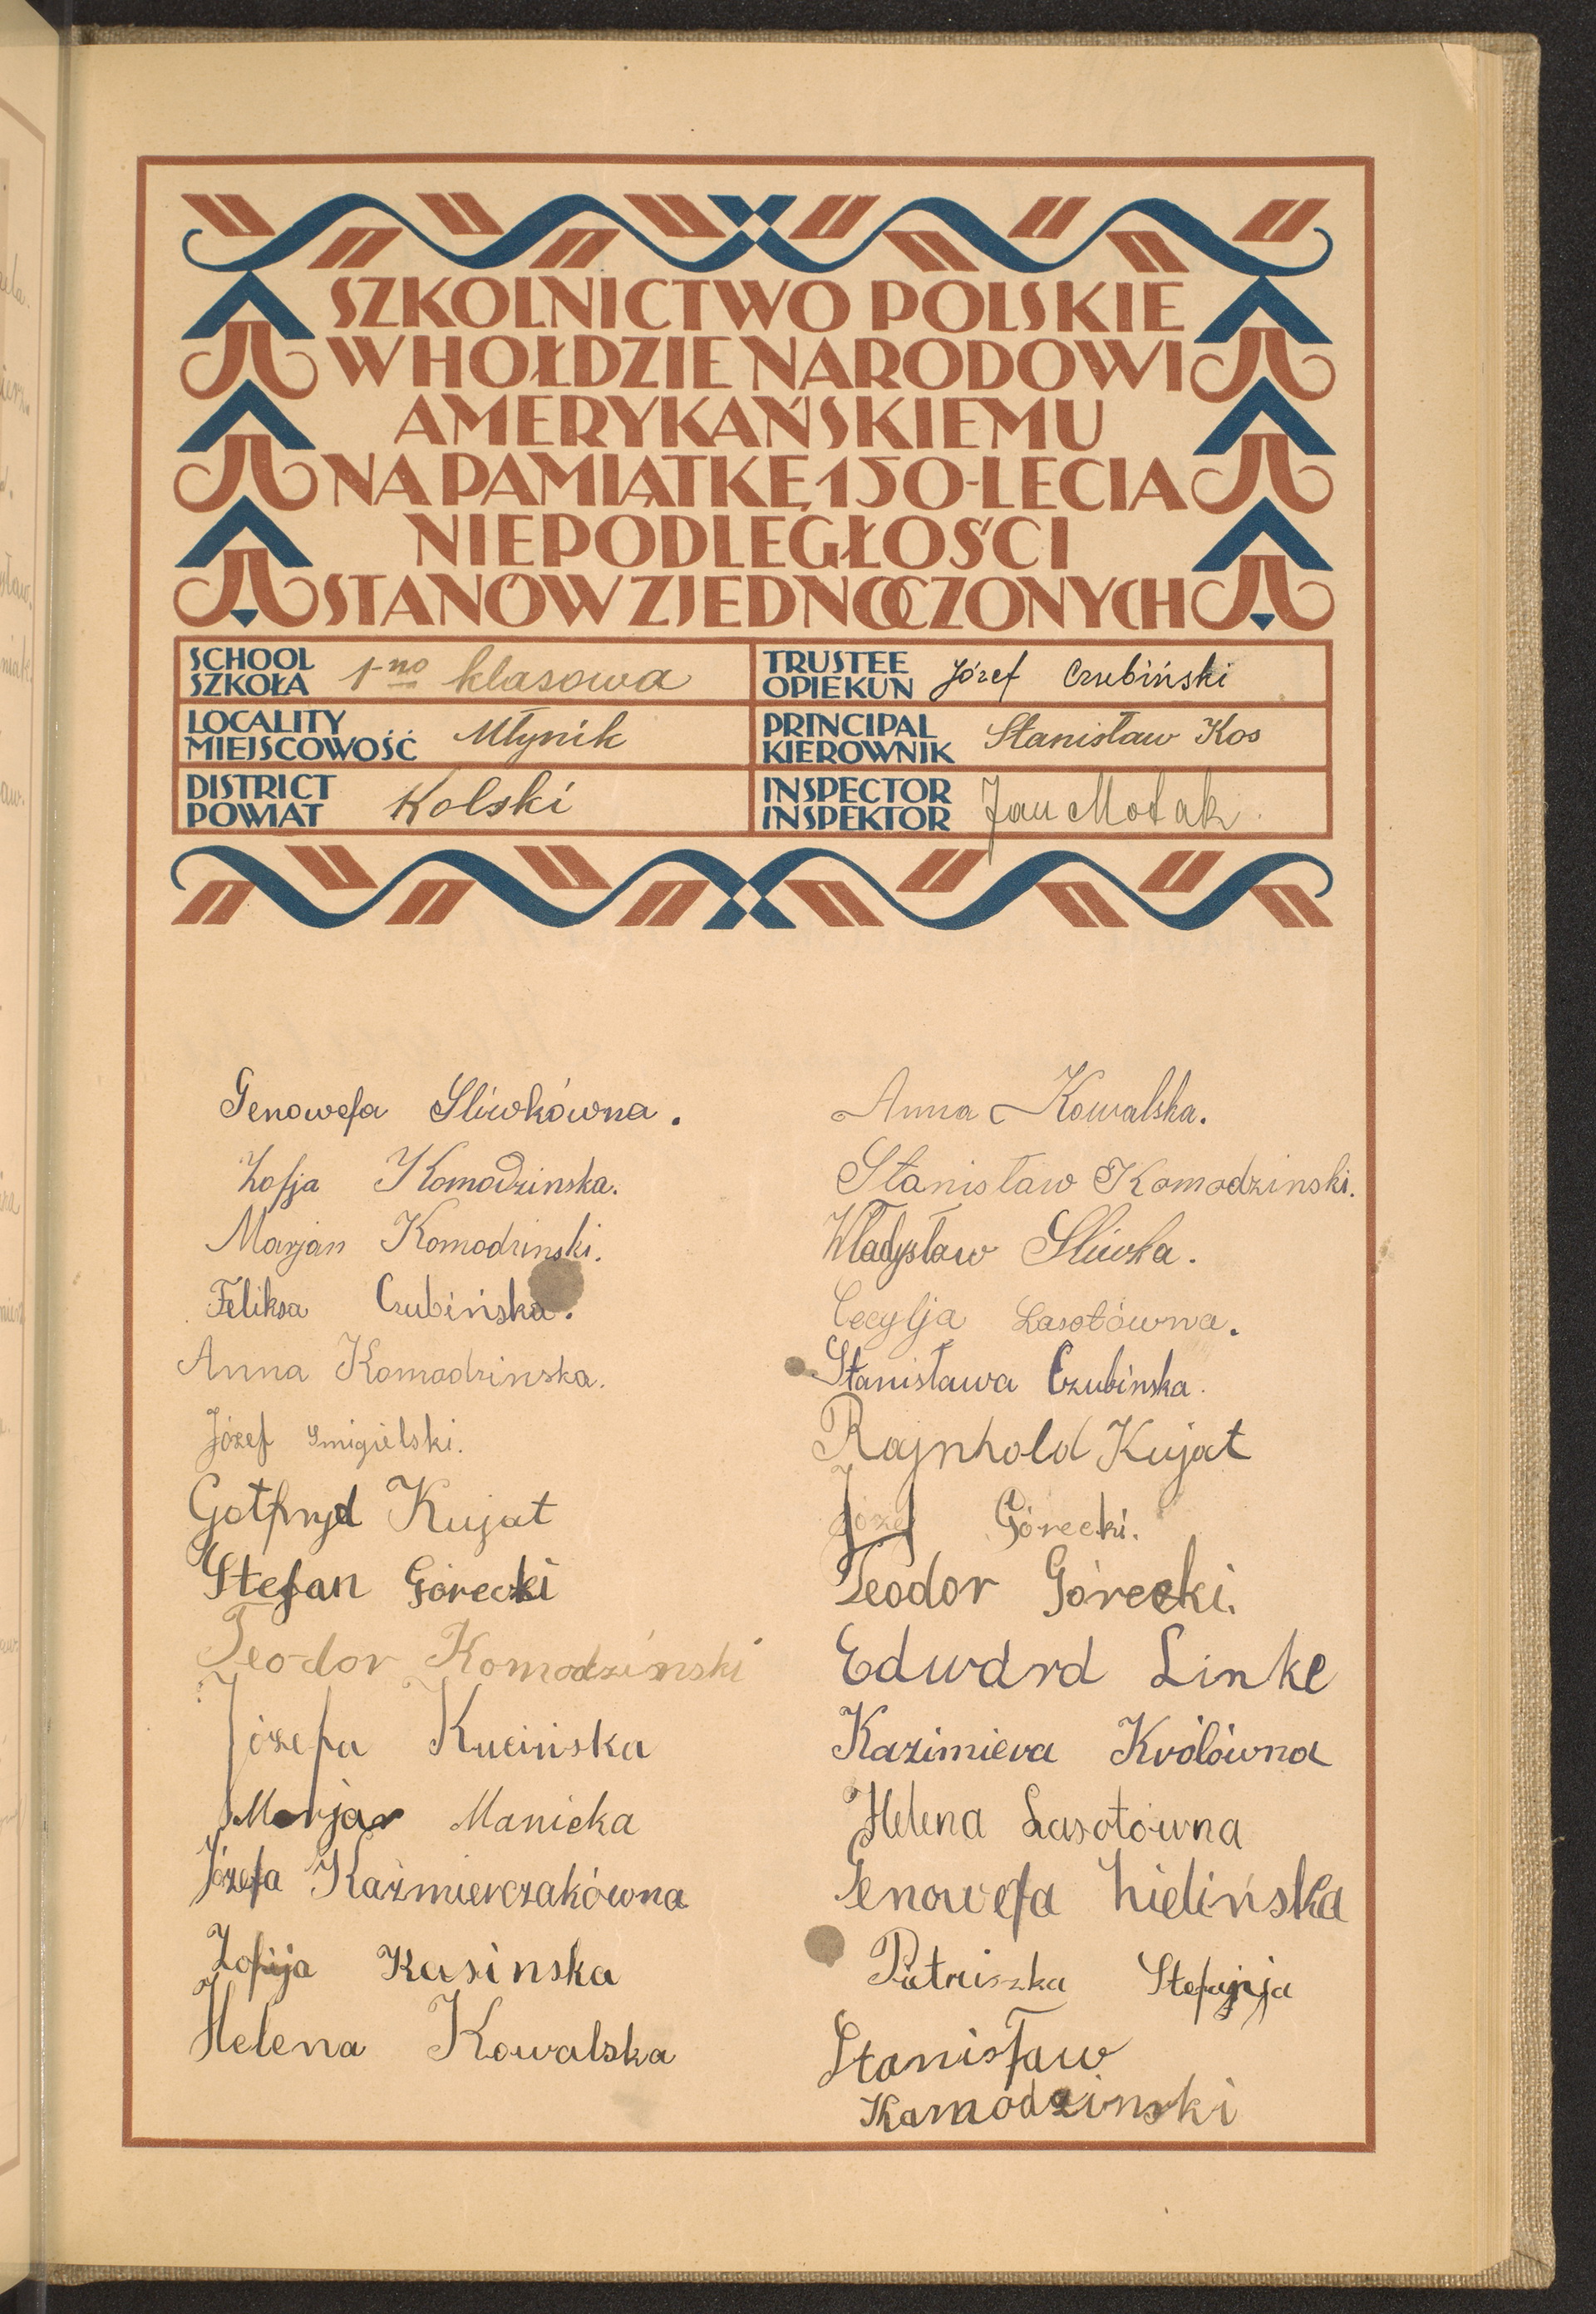 SZKOLNICTWO POLSKIE
W HOŁDZIE NARODOWI
AMERYKAŃSKIEMU
NA PAMIĄTKĘ 150-LECIA
NIEPODLEGŁOŚCI
STANÓW ZJEDNOCZONYCH
SCHOOL
SZKOŁA
1-no klasowa
TRUSTEE
OPIEKUN
Józef Czubiński
LOCALITY
MIEJSCOWOŚĆ
Młynik
PRINCIPAL
KIEROWNIK
Stanisław Kos
DISTRICT
POWIAT
Kolski
INSPECTOR
INSPEKTOR
Jan Motak
Genowefa Sliwkówna.
Zofja Komodzinska.
Marjan Komodzinski.
Feliksa Czubińska.
Anna Komodzinska.
Józef Smigielski.
Gotfryd Kujat
Stefan Górecki
Teodor Komodzinski
Józefa Kucińska
Marja Manicka
Józefa Kaźmierczakówna
Zofija Kasinska
Helena Kowalska
Anna Kowalska.
Stanisław Komodzinski.
Władysław Sliwka.
Cecylja Lasotówna.
Stanisława Czubinska.
Rajnhold Kujat
Józef Górecki.
Teodor Górecki.
Edward Linke
Kazimiera Królówna
Helena Lasotówna
Genowefa Zielińska
Patruszka Stefanja
Stanisław
Kamodzinski